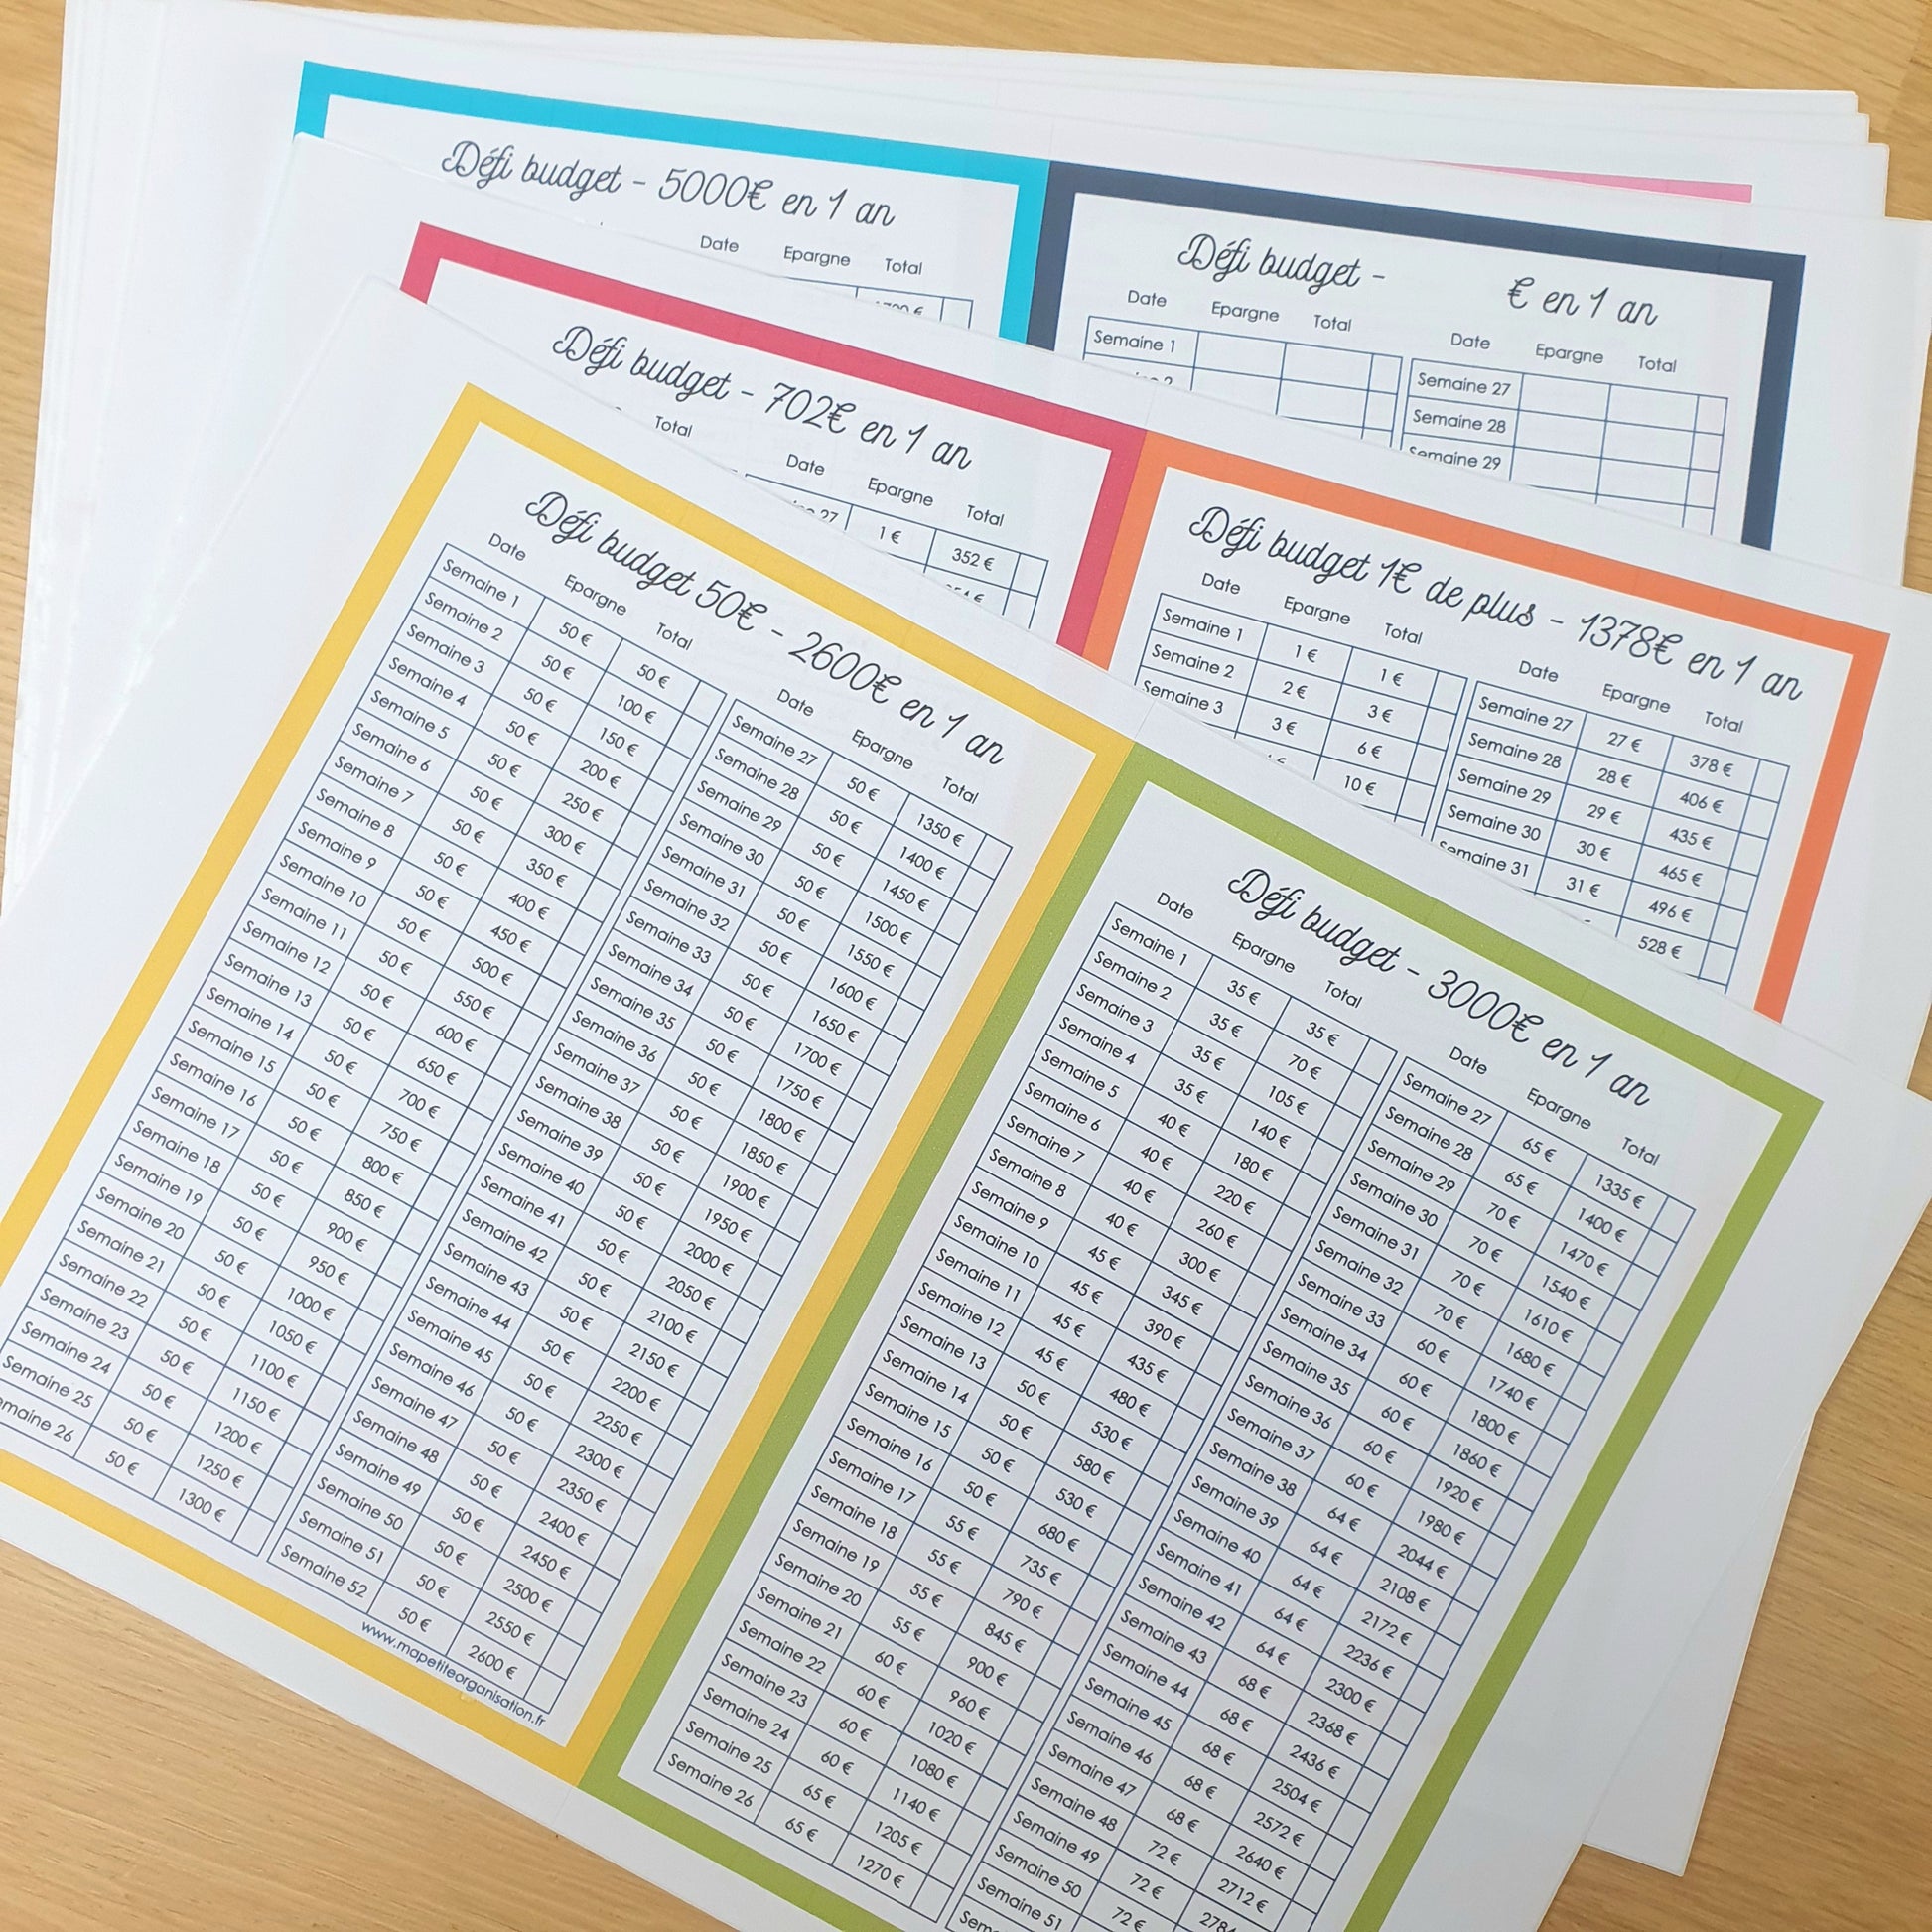 Défi budget - 5000€ en 1 an
Date Epargne Total
Défi budget - € en 1 an
Date Epargne Total
Semaine 1
Date Epargne Total
Semaine 27
Semaine 28
Semaine 29
Défi budget - 702€ en 1 an
Total
Date Epargne Total
27 1 € 352 €
Défi budget 1€ de plus - 1378€ en 1 an
Date Epargne Total
Semaine 1 1 € 1 €
Semaine 2 2 € 3 €
Semaine 3 3 € 6 €
10 €
Date Epargne Total
Semaine 27 27 € 378 €
Semaine 28 28 € 406 €
Semaine 29 29 € 435 €
Semaine 30 30 € 465 €
Semaine 31 31 € 496 €
528 €
Défi budget 50€ - 2600€ en 1 an
Date Epargne Total
Semaine 1 50 € 50 €
Semaine 2 50 € 100 €
Semaine 3 50 € 150 €
Semaine 4 50 € 200 €
Semaine 5 50 € 250 €
Semaine 6 50 € 300 €
Semaine 7 50 € 350 €
Semaine 8 50 € 400 €
Semaine 9 50 € 450 €
Semaine 10 50 € 500 €
Semaine 11 50 € 550 €
Semaine 12 50 € 600 €
Semaine 13 50 € 650 €
Semaine 14 50 € 700 €
Semaine 15 50 € 750 €
Semaine 16 50 € 800 €
Semaine 17 50 € 850 €
Semaine 18 50 € 900 €
Semaine 19 50 € 950 €
Semaine 20 50 € 1000 €
Semaine 21 50 € 1050 €
Semaine 22 50 € 1100 €
Semaine 23 50 € 1150 €
Semaine 24 50 € 1200 €
Semaine 25 50 € 1250 €
emaine 26 50 € 1300 €
Date Epargne Total
Semaine 27 50 € 1350 €
Semaine 28 50 € 1400 €
Semaine 29 50 € 1450 €
Semaine 30 50 € 1500 €
Semaine 31 50 € 1550 €
Semaine 32 50 € 1600 €
Semaine 33 50 € 1650 €
Semaine 34 50 € 1700 €
Semaine 35 50 € 1750 €
Semaine 36 50 € 1800 €
Semaine 37 50 € 1850 €
Semaine 38 50 € 1900 €
Semaine 39 50 € 1950 €
Semaine 40 50 € 2000 €
Semaine 41 50 € 2050 €
Semaine 42 50 € 2100 €
Semaine 43 50 € 2150 €
Semaine 44 50 € 2200 €
Semaine 45 50 € 2250 €
Semaine 46 50 € 2300 €
Semaine 47 50 € 2350 €
Semaine 48 50 € 2400 €
Semaine 49 50 € 2450 €
Semaine 50 50 € 2500 €
Semaine 51 50 € 2550 €
Semaine 52 50 € 2600 €
www.mapetiteorganisation.fr
Défi budget - 3000€ en 1 an
Date Epargne Total
Semaine 1 35 € 35 €
Semaine 2 35 € 70 €
Semaine 3 35 € 105 €
Semaine 4 35 € 140 €
Semaine 5 40 € 180 €
Semaine 6 40 € 220 €
Semaine 7 40 € 260 €
Semaine 8 40 € 300 €
Semaine 9 45 € 345 €
Semaine 10 45 € 390 €
Semaine 11 45 € 435 €
Semaine 12 45 € 480 €
Semaine 13 50 € 530 €
Semaine 14 50 € 580 €
Semaine 15 50 € 530 €
Semaine 16 50 € 680 €
Semaine 17 55 € 735 €
Semaine 18 55 € 790 €
Semaine 19 55 € 845 €
Semaine 20 55 € 900 €
Semaine 21 60 € 960 €
Semaine 22 60 € 1020 €
Semaine 23 60 € 1080 €
Semaine 24 60 € 1140 €
Semaine 25 65 € 1205 €
Semaine 26 65 € 1270 €
Date Epargne Total
Semaine 27 65 € 1335 €
Semaine 28 65 € 1400 €
Semaine 29 70 € 1470 €
Semaine 30 70 € 1540 €
Semaine 31 70 € 1610 €
Semaine 32 70 € 1680 €
Semaine 33 60 € 1740 €
Semaine 34 60 € 1800 €
Semaine 35 60 € 1860 €
Semaine 36 60 € 1920 €
Semaine 37 60 € 1980 €
Semaine 38 64 € 2044 €
Semaine 39 64 € 2108 €
Semaine 40 64 € 2172 €
Semaine 41 64 € 2236 €
Semaine 42 64 € 2300 €
Semaine 43 68 € 2368 €
Semaine 44 68 € 2436 €
Semaine 45 68 € 2504 €
Semaine 46 68 € 2572 €
Semaine 47 68 € 2640 €
Semaine 48 72 € 2712 €
Semaine 49 72 € 2784
Semaine 50 72 €
Semaine 51